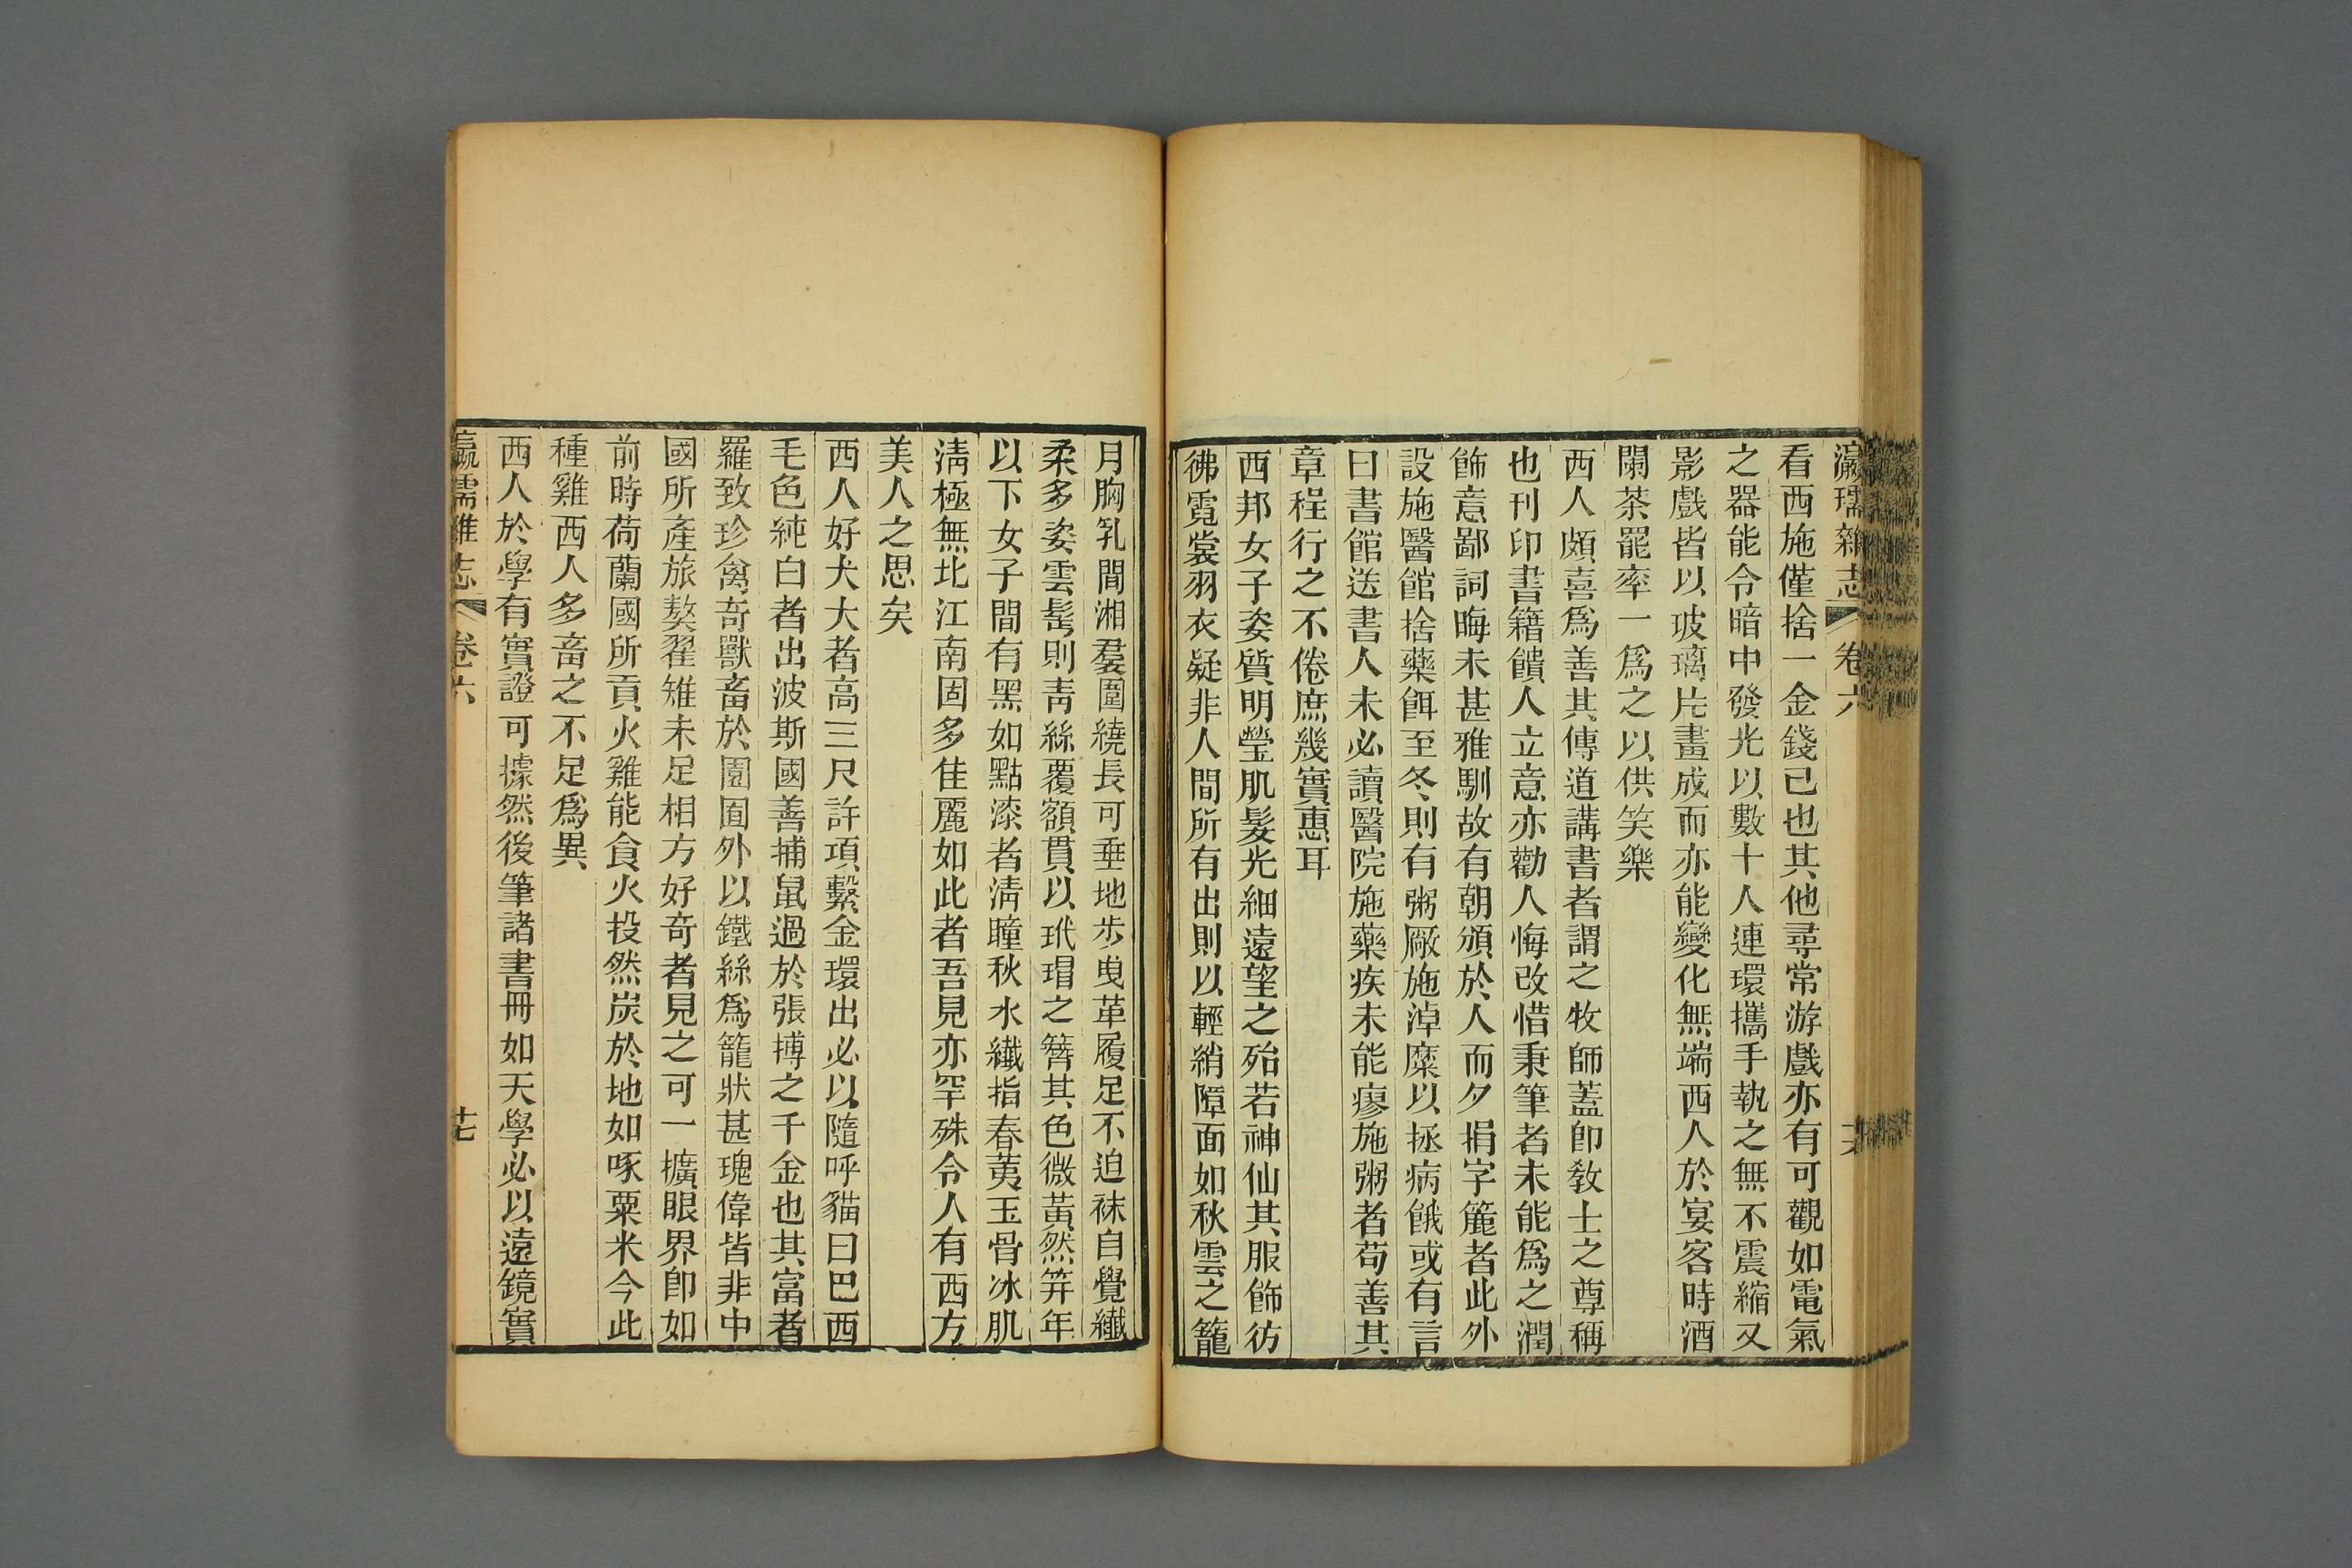 瀛壖雜志
卷六
看西施僅捨一金錢已也其他尋常游戲亦有可觀如電氣
之器能令暗中發光以數十人連環攜手執之無不震縮又
影戲皆以玻璃片畫成而亦能變化無端西人於宴客時酒
闌茶罷率一爲之以供笑樂
西人頗喜爲善其傳道講書者謂之牧師蓋卽教士之尊稱
也刊印書籍饋人立意亦勸人悔改惜秉筆者未能爲之潤
飾意鄙詞晦未甚雅馴故有朝頒於人而夕捐字簏者此外
設施醫館捨藥餌至冬則有粥厰施淖糜以拯病餓或有言
曰書館送書人未必讀醫院施藥疾未能瘳施粥者苟善其
章程行之不倦庶幾實惠耳
西邦女子姿質明瑩肌髮光細遠望之殆若神仙其服飾彷
彿霓裳羽衣疑非人間所有出則以輕綃障面如秋雲之籠
月胸乳間湘羣圍繞長可垂地步曳革履足不迫袜自覺纖
柔多姿雲髩則靑絲覆額貫以玳瑁之簪其色微黃然笄年
以下女子間有黑如點漆者淸瞳秋水纖指春荑玉骨冰肌
淸極無比江南固多佳麗如此者吾見亦罕殊令人有西方
美人之思矣
西人好犬大者高三尺許項繫金環出必以隨呼貓曰巴西
毛色純白者出波斯國善捕鼠過於張摶之千金也其富者
羅致珍禽奇獸畜於園囿外以鐵絲爲籠狀甚瑰偉皆非中
國所產旅獒翟雉未足相方好奇者見之可一擴眼界卽如
前時荷蘭國所貢火雞能食火投然炭於地如啄粟米今此
種雞西人多畜之不足爲異
西人於學有實證可據然後筆諸書冊如天學必以遠鏡實
瀛壖雜志
卷六
十七